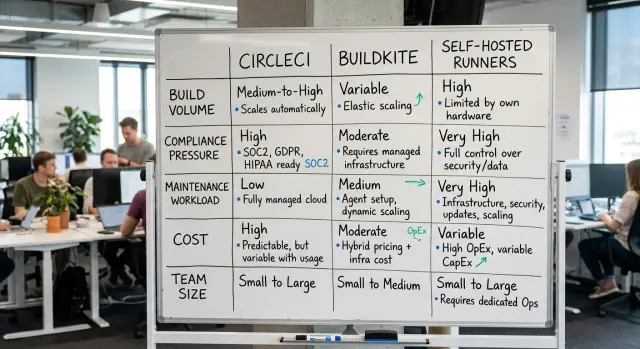 CIRCLECI
BUILDKITE
SELF-HOSTED
RUNNERS
BUILD
VOLUME
Medium-to-High
• Scales automatically
Variable
• Elastic scaling
High
• Limited by own
hardware
COMPLIANCE
PRESSURE
High
• SOC2, GDPR,
HIPAA ready SOC2
Moderate
• Requires managed
infrastructure
Very High
• Full control over
security/data
MAINTENANCE
WORKLOAD
Low
• Fully managed cloud
Medium →
• Agent setup,
dynamic scaling
Very High
• Infrastructure, security,
updates, scaling
COST
High
• Predictable, but
variable with usage
Moderate OpEx
• Hybrid pricing +
infra cost
Variable
• High OpEx, variable
CapEx ↗
TEAM
SIZE
Small to Large
Small to Medium
Small to Large
• Requires dedicated Ops